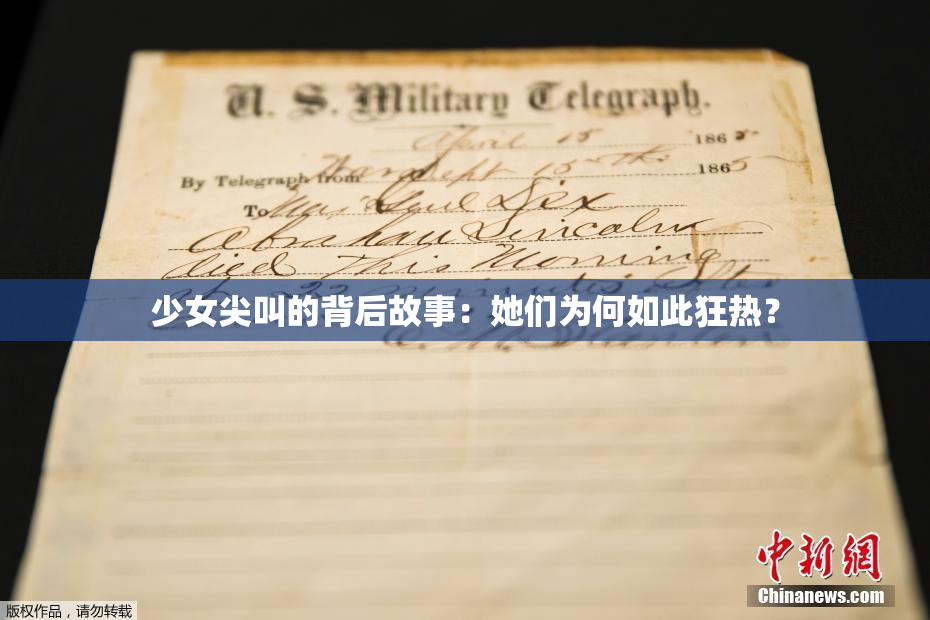 U. S. Military Telegraph.
April 15 1865
By Telegraph from War Dept 15th 1865
To Maj Genl Dix
Abraham Lincoln
died This Morning
at 22 minutes after
少女尖叫的背后故事：她们为何如此狂热？
E. M. Stanton
中新網
Chinanews.com
版权作品，请勿转载